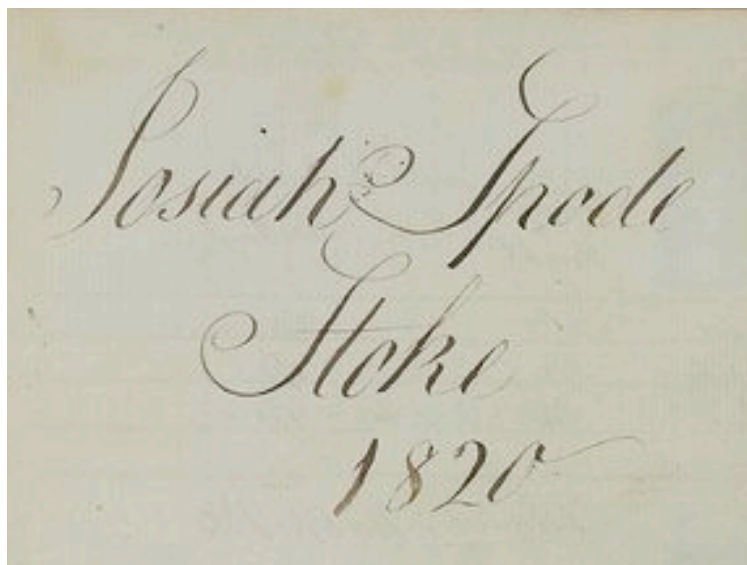 Josiah Spode
Stoke
1820